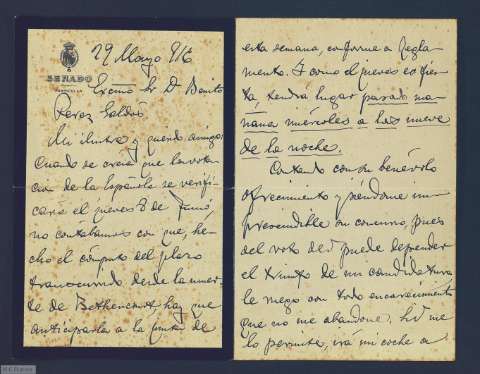 29 Mayo 916
SENADO
Excmo Sr D. Benito
Perez Galdós
Mi ilustre y querido amigo:
Cuando se creia que la vota-
cion de la Española se verifi-
caria el jueves 8 de Junio
no contabamos con que, he-
cho el computo del plazo
transcurrido desde la muer-
te de Bethencourt, hay que
anticiparla a la junta de
esta semana, conforme a Regla-
mento. Y como el jueves es fies-
ta, tendrá lugar pasado ma-
ñana miercoles a las nueve
de la noche.
Contando con su benévolo
ofrecimiento y siendome im-
prescindible su concurso, pues
del voto de V puede depender
el triunfo de mi candidatura
le ruego con todo encarecimiento
que no me abandone. Si me
lo permite, irá mi coche a